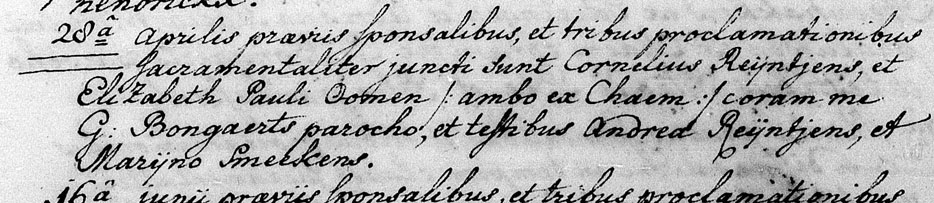 hendrickx.
28â aprilis præviis sponsalibus, et tribus proclamationibus
sacramentaliter juncti sunt Cornelius Reijntjens, et
Elizabeth Pauli Oomen /: ambo ex Chaem :/ coram me
G: Bongaerts parocho, et testibus Andrea Reijntjens, et
Marijno Smeekens.
16â junii præviis sponsalibus, et tribus proclamationibus